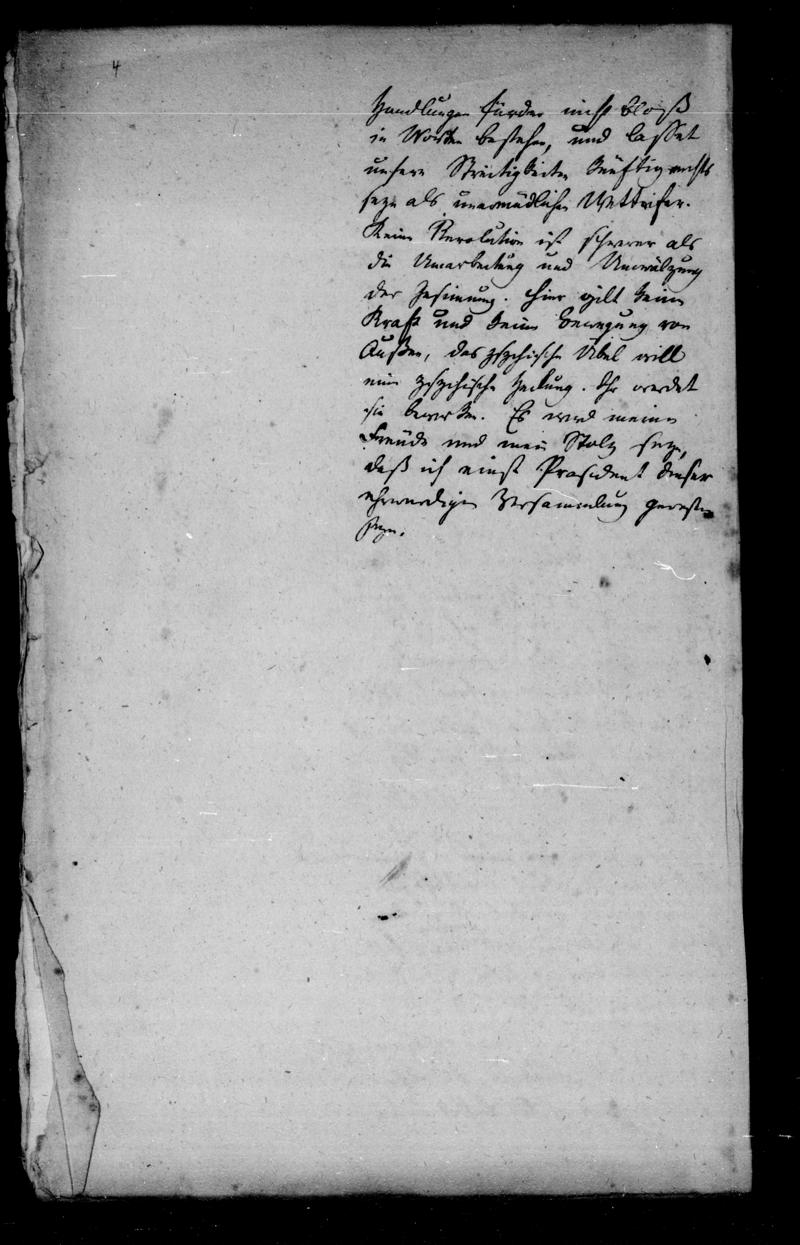 4
Handlungen fürder nicht bloß
in Worten bestehen, und lasset
unsere Streitigkeiten künftig nichts
seyn als unermüdlicher Wetteifer.
Keine Revolution ist schwerer als
die Umarbeitung und Umwälzung
der Gesinnung. Hier gilt keine
Kraft und keine Bewegung von
Außen, das psychische Übel will
eine psychische Heilung. Ihr werdet
sie bewirken. Es wird meine
Freude und mein Stolz seyn,
daß ich einst Präsident dieser
ehrwürdigen Versammlung gewesen
seyn.